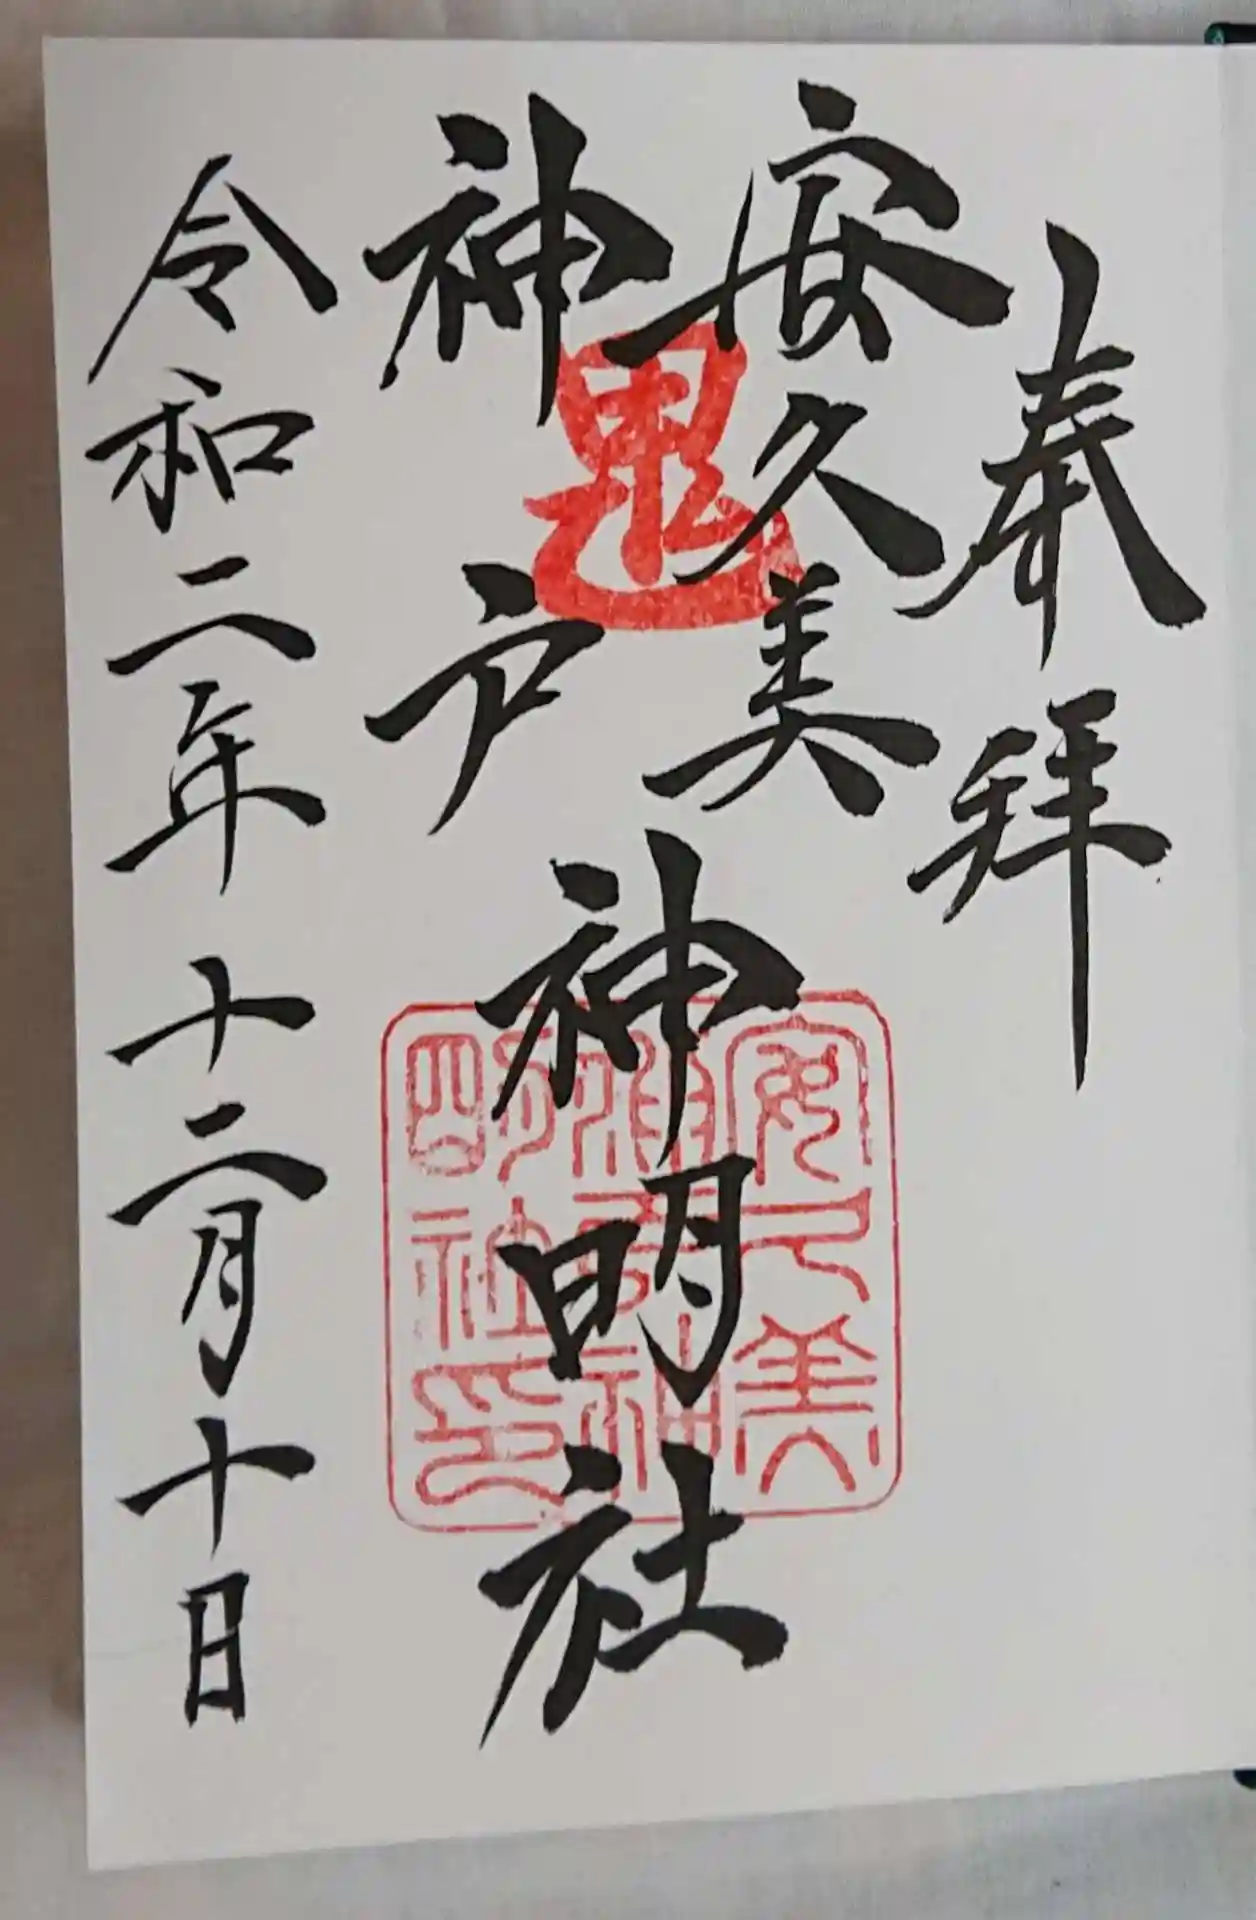 奉拝
安久美
神戸
神明社
鬼
安久美
神戸神
明社印
令和二年十二月十日